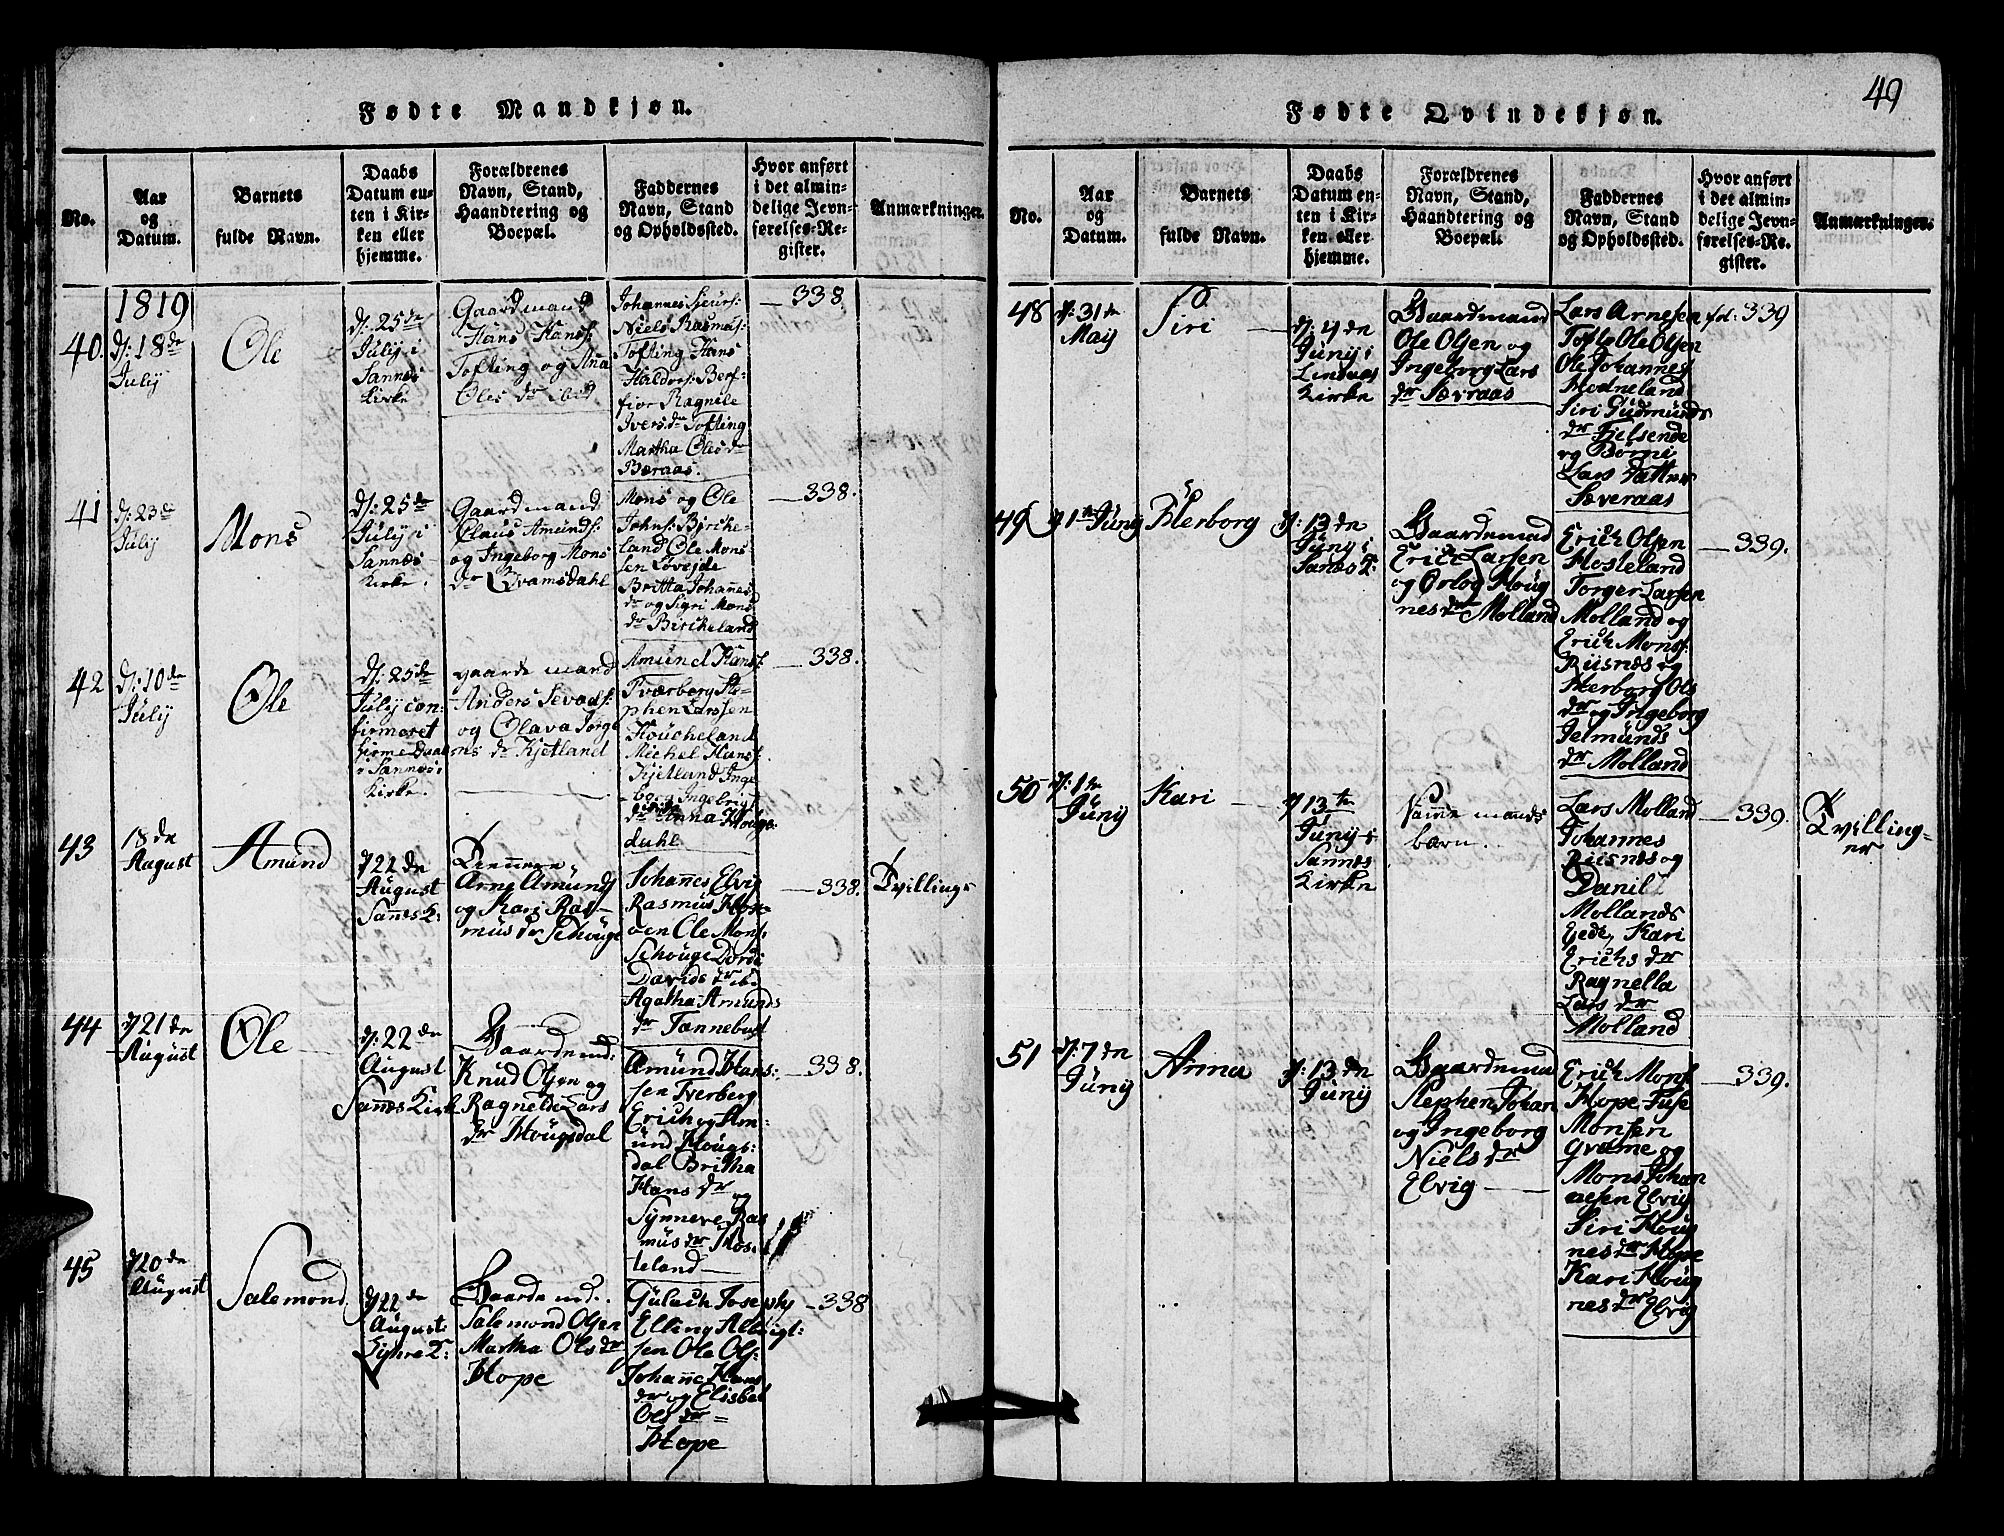 Fødte Mandkjøn.
No.
Aar
og
Datum.
Barnets
fulde Navn.
Daabs
Datum en-
ten i Kir-
ken eller
hjemme.
Forældrenes
Navn, Stand,
Haandtering og
Boepæl.
Faddernes
Navn, Stand
og Opholdssted.
Hvor anført
i det almin-
delige Jevn-
førelses-Re-
gister.
Anmærkninger.
1819
40.
d: 18de
Julij
Ole
d: 25de
Julij i
Sannes
Kirke
Gaardmand
Hans Hans:
Tofting og Ana
Oles dr ibid
Johannes Siurs:
Niels Rasmus:
Tofting Hans
Haldors: Ber-
fior Ragnile
Ivers dr Tofting
Martha Oles dr
Bæraas.
338.
41
d: 23de
Julij
Mons
d: 25de
Julij i
Sannes
Kirke.
Gaardmand
Claus Amunds:
og Ingeborg Mons
dr Qvamsdahl
Mons og Ole
Johns: Birke-
land Ole Mons
sen Lovejde
Britta Johannes
dr og Sigri Mons
dr Birkeland
338.
42
d: 10de
Julij
Ole
d: 25de
Julij con-
firmeret
hieme Daab
i Sannes
Kirke.
gaarde mand
Anders Sevads:
og Olava Jørge
ns dr Kjetland
Amund Hans:
Tværborg Ste-
phen Larssen
Houcheland
Michel Hans:
Kjetland Inge
borg Ingebrigt
dr Anna Hougs
dahl
338.
43
18de
August
Amund
d 22de
August
Sannes K:
Arne Amunds
og Kari Ras-
mus dr Schouge
Johannes Elvig
Rasmus
Ole Mons:
Schouge Dordi
Davids dr ib:
Agatha Amunds
dr Tannebust
338.
Tvillinge
44
d 21de
August
Ole
d: 22de
August
Sannes Kirk
Gaardemd:
Knud Olsen og
Ragnelde Lars
dr Hougsdal
Amund Hans:
sen Tverberg
Erich og Am:
und Hougs:
dal Britha
Hans dr og
Synneve Ras
mus dr Hos
teland
338.
45
d 20de
August
Salemond
d 22de
August
Gaardemd.
Salemond Olsen
Martha Ols dr
Hope
Gulach Joseph
Elling
sen Ole Ols:
Johanne Hans
dr og Elisbet
Ols dr
Hope
338
49
Fødte Qvindekjøn.
No.
Aar
og
Datum.
Barnets
fulde Navn.
Daabs
Datum en-
ten i Kir-
ken eller
hjemme.
Forældrenes
Navn, Stand,
Haandtering og
Boepæl.
Faddernes
Navn, Stand
og Opholdssted.
Hvor anført
i det almin-
delige Jevn-
førelses-Re-
gister.
Anmærkninger.
48
d: 31te
May
Siri
d: 4de
Junij i
Lindaas
Kirke
Gaardmand
Ole Olsen og
Ingeborg Lars
dr Sævraas
Lars Arnesen
Ole Olsen
Ole Johannes
Hodneland
Siri Gudmunds
dr Fjelsende
og Børne
Lars Datter
Sæveraas
fol: 339
49
d 1te Junij
Herborg
d: 13de
Junij i
Sanes K:
Gaardemad
Erich Larsen
og Orlog Houg
nes dr Molland
Erich Olsen
Hosteland
Torger Larsen
Molland og
Erich Mons:
Riisnes og
Herborg Ols
dr og Ingeborg
Jelmunds
dr Molland
339.
50
d: 1te
Junij
Kari
d 13te
Junij i
Sannes
Kirke
Samme mands
barn.
Lars Molland
Johannes
Riisnes og
Danil
Mollands
Ejede, Kari
Erichs dr
Ragnella
Lars dr
Molland
339.
Tvilling-
er
51
d: 7de
Junij
Anna
d: 13de
Junij
Gaardemad
Stephen Johan
og Ingeborg
Niels dr
Elvig
Erich Mons:
Hope Fuse
Monsen
Qvame og
Mons Johan
nesen Elvig
Siri Houg
nes dr Hope
Kari Houg
nes dr Elvig
339.